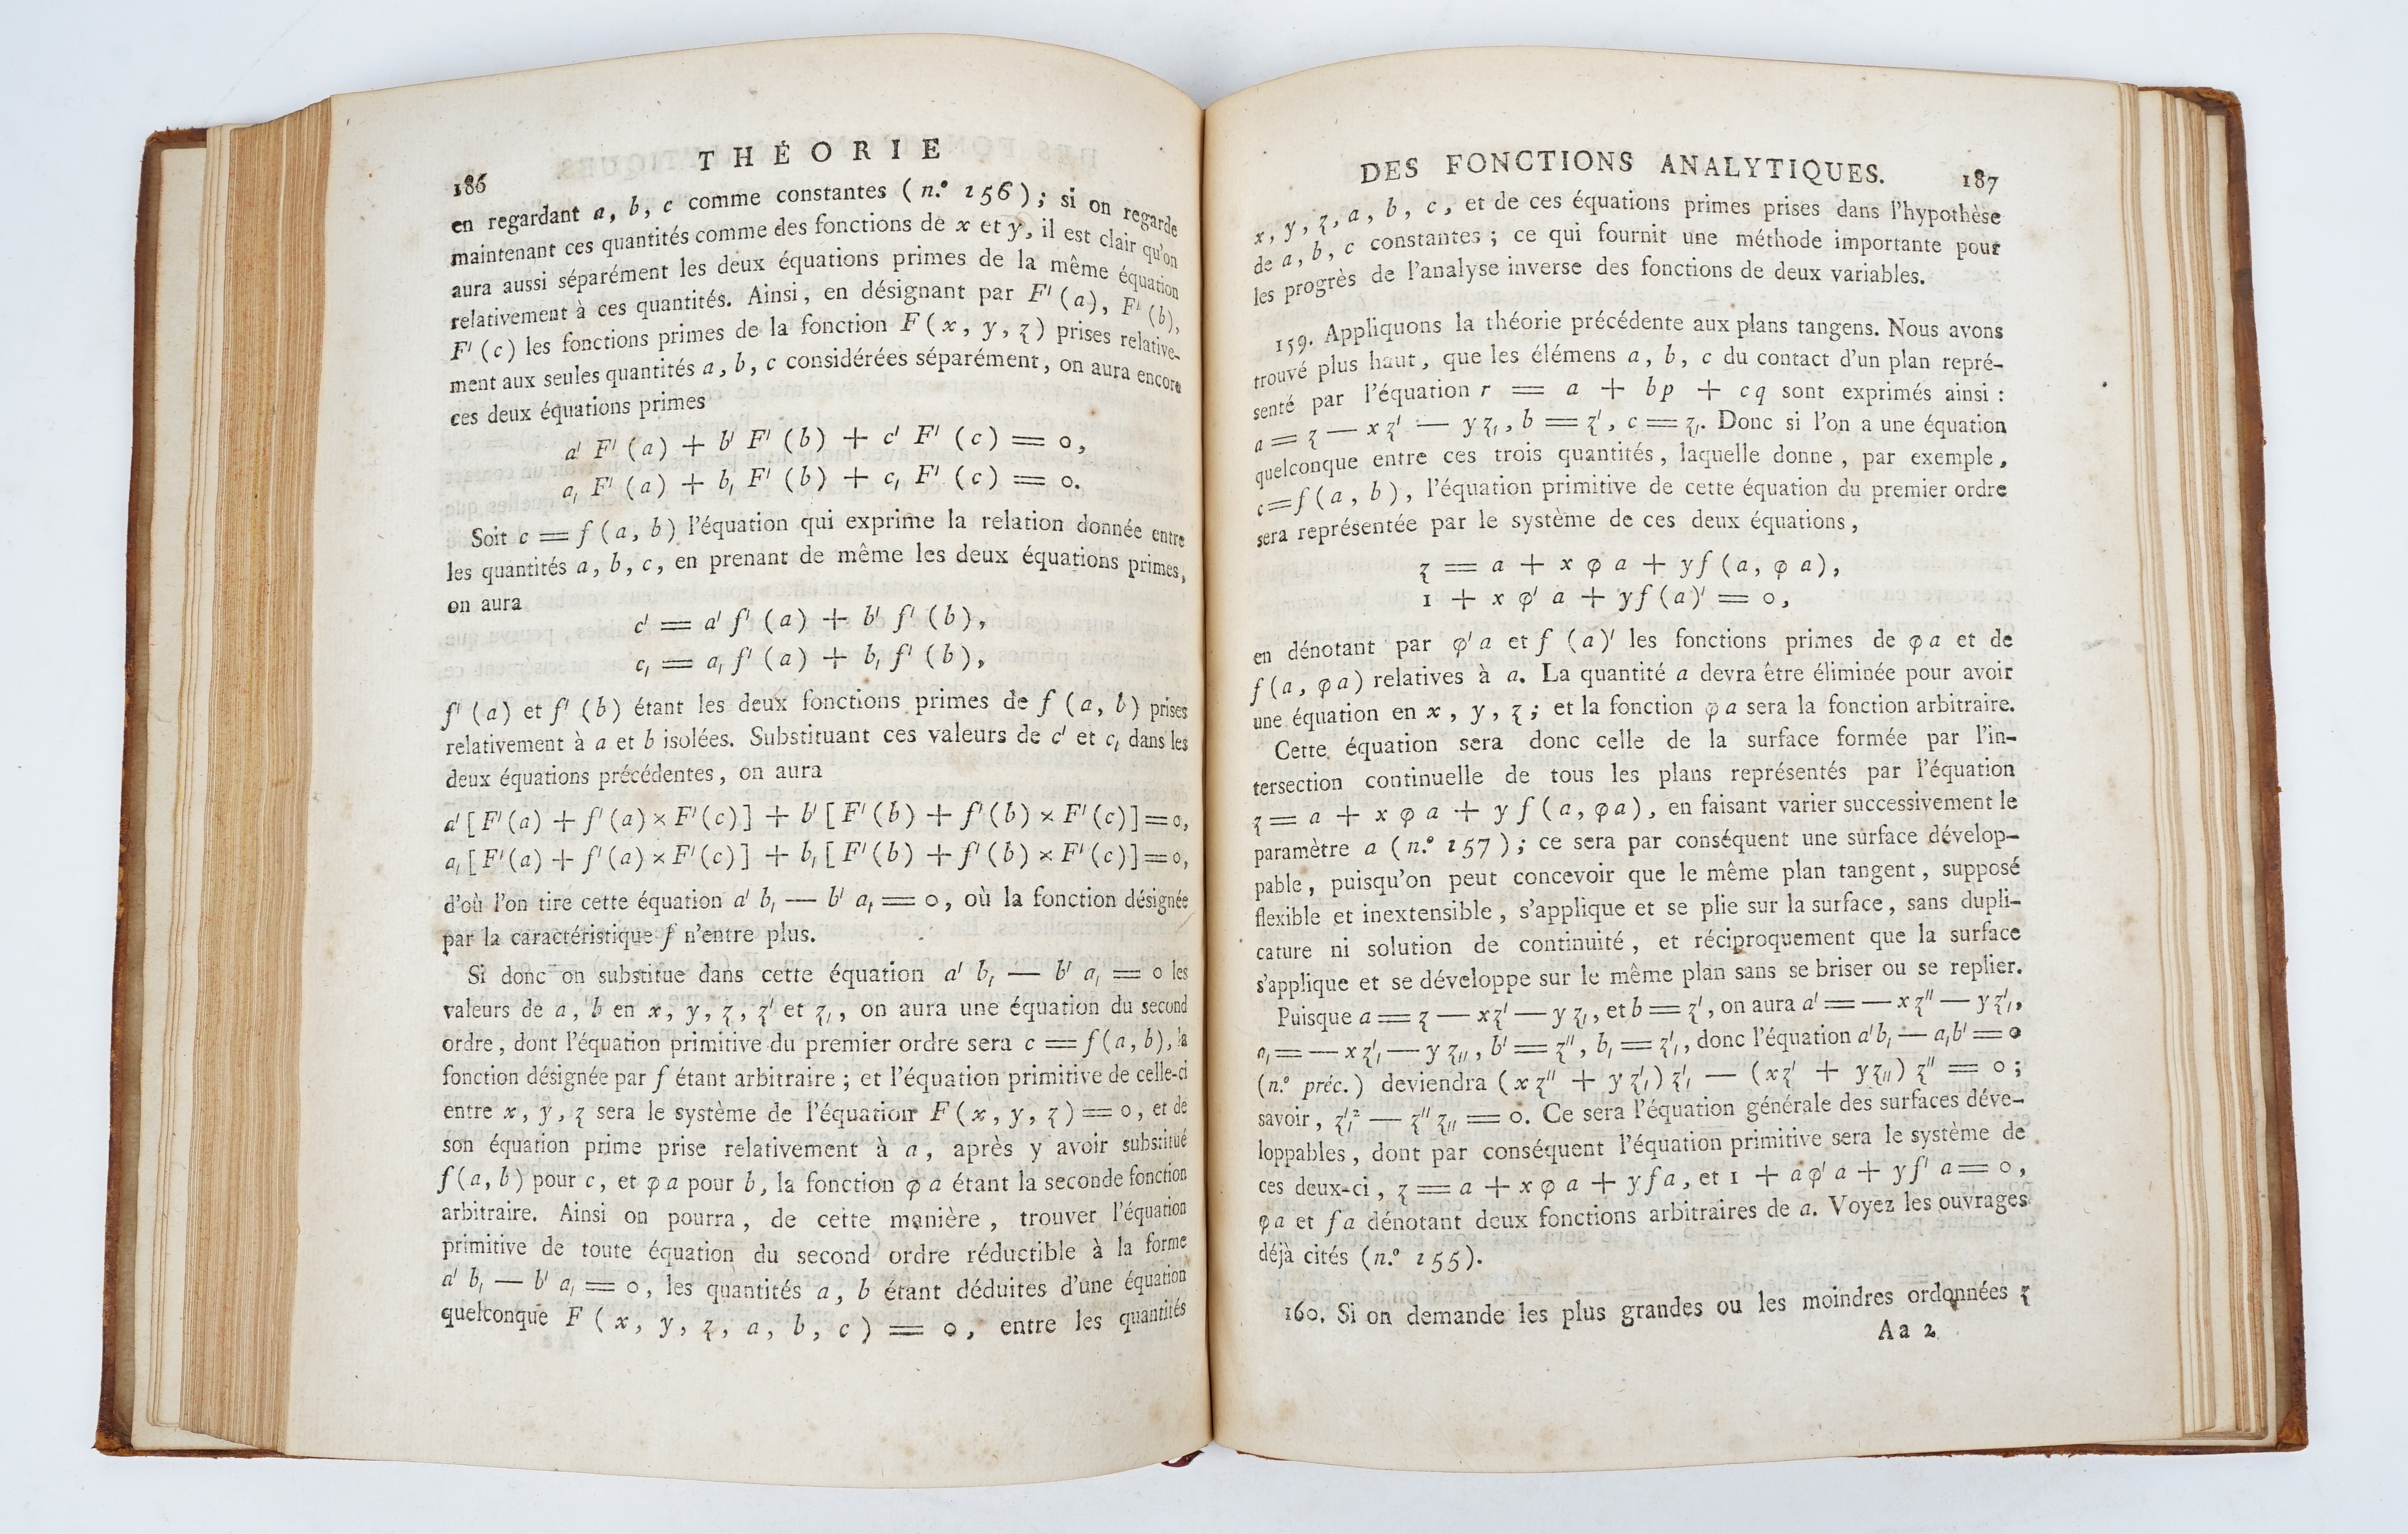 186
THÉORIE
en regardant a, b, c comme constantes ( n.° 156 ) ; si on regarde
maintenant ces quantités comme des fonctions de x et y, il est clair qu'on
aura aussi séparément les deux équations primes de la même équation
relativement à ces quantités. Ainsi, en désignant par F' (a), F' (b),
F' (c) les fonctions primes de la fonction F (x, y, z) prises relative-
ment aux seules quantités a, b, c considérées séparément, on aura encore
ces deux équations primes
a' F' (a) + b' F' (b) + c' F' (c) = 0,
a, F' (a) + b, F' (b) + c, F' (c) = 0.
Soit c = f (a, b) l'équation qui exprime la relation donnée entre
les quantités a, b, c, en prenant de même les deux équations primes,
on aura
c' = a' f' (a) + b' f' (b),
c, = a, f' (a) + b, f' (b),
f' (a) et f' (b) étant les deux fonctions primes de f (a, b) prises
relativement à a et b isolées. Substituant ces valeurs de c' et c, dans les
deux équations précédentes, on aura
a' [ F' (a) + f' (a) × F' (c) ] + b' [ F' (b) + f' (b) × F' (c) ] = 0,
a, [ F' (a) + f' (a) × F' (c) ] + b, [ F' (b) + f' (b) × F' (c) ] = 0,
d'où l'on tire cette équation a' b, — b' a, = 0, où la fonction désignée
par la caractéristique f n'entre plus.
Si donc on substitue dans cette équation a' b, — b' a, = 0 les
valeurs de a, b en x, y, z, z' et z,, on aura une équation du second
ordre, dont l'équation primitive du premier ordre sera c = f (a, b), la
fonction désignée par f étant arbitraire ; et l'équation primitive de celle-ci
entre x, y, z sera le système de l'équation F (x, y, z) = 0, et de
son équation prime prise relativement à a, après y avoir substitué
f (a, b) pour c, et φ a pour b, la fonction φ a étant la seconde fonction
arbitraire. Ainsi on pourra, de cette manière, trouver l'équation
primitive de toute équation du second ordre réductible à la forme
a' b, — b' a, = 0, les quantités a, b étant déduites d'une équation
quelconque F ( x, y, z, a, b, c ) = 0, entre les quantités
DES FONCTIONS ANALYTIQUES. 187
x, y, z, a, b, c, et de ces équations primes prises dans l'hypothèse
de a, b, c constantes ; ce qui fournit une méthode importante pour
les progrès de l'analyse inverse des fonctions de deux variables.
159. Appliquons la théorie précédente aux plans tangens. Nous avons
trouvé plus haut, que les élémens a, b, c du contact d'un plan repré-
senté par l'équation r = a + bp + cq sont exprimés ainsi :
a = z — x z' — y z,, b = z', c = z,. Donc si l'on a une équation
quelconque entre ces trois quantités, laquelle donne, par exemple,
c = f (a, b), l'équation primitive de cette équation du premier ordre
sera représentée par le système de ces deux équations,
z = a + x φ a + y f (a, φ a),
1 + x φ' a + y f (a)' = 0,
en dénotant par φ' a et f (a)' les fonctions primes de φ a et de
f (a, φ a) relatives à a. La quantité a devra être éliminée pour avoir
une équation en x, y, z ; et la fonction φ a sera la fonction arbitraire.
Cette équation sera donc celle de la surface formée par l'in-
tersection continuelle de tous les plans représentés par l'équation
z = a + x φ a + y f (a, φ a), en faisant varier successivement le
paramètre a ( n.° 157 ) ; ce sera par conséquent une surface dévelop-
pable, puisqu'on peut concevoir que le même plan tangent, supposé
flexible et inextensible, s'applique et se plie sur la surface, sans dupli-
cature ni solution de continuité, et réciproquement que la surface
s'applique et se développe sur le même plan sans se briser ou se replier.
Puisque a = z — x z' — y z,, et b = z', on aura a' = — x z'' — y z',,
a, = — x z', — y z,,, b' = z'', b, = z',, donc l'équation a' b, — a, b' = 0
(n.° préc.) deviendra (x z'' + y z',) z', — (x z' + y z,,) z'' = 0 ;
savoir, z',² — z'' z,, = 0. Ce sera l'équation générale des surfaces déve-
loppables, dont par conséquent l'équation primitive sera le système de
ces deux-ci, z = a + x φ a + y f a, et 1 + a φ' a + y f' a = 0,
φ a et f a dénotant deux fonctions arbitraires de a. Voyez les ouvrages
déjà cités (n.° 155).
160. Si on demande les plus grandes ou les moindres ordonnées z
A a 2